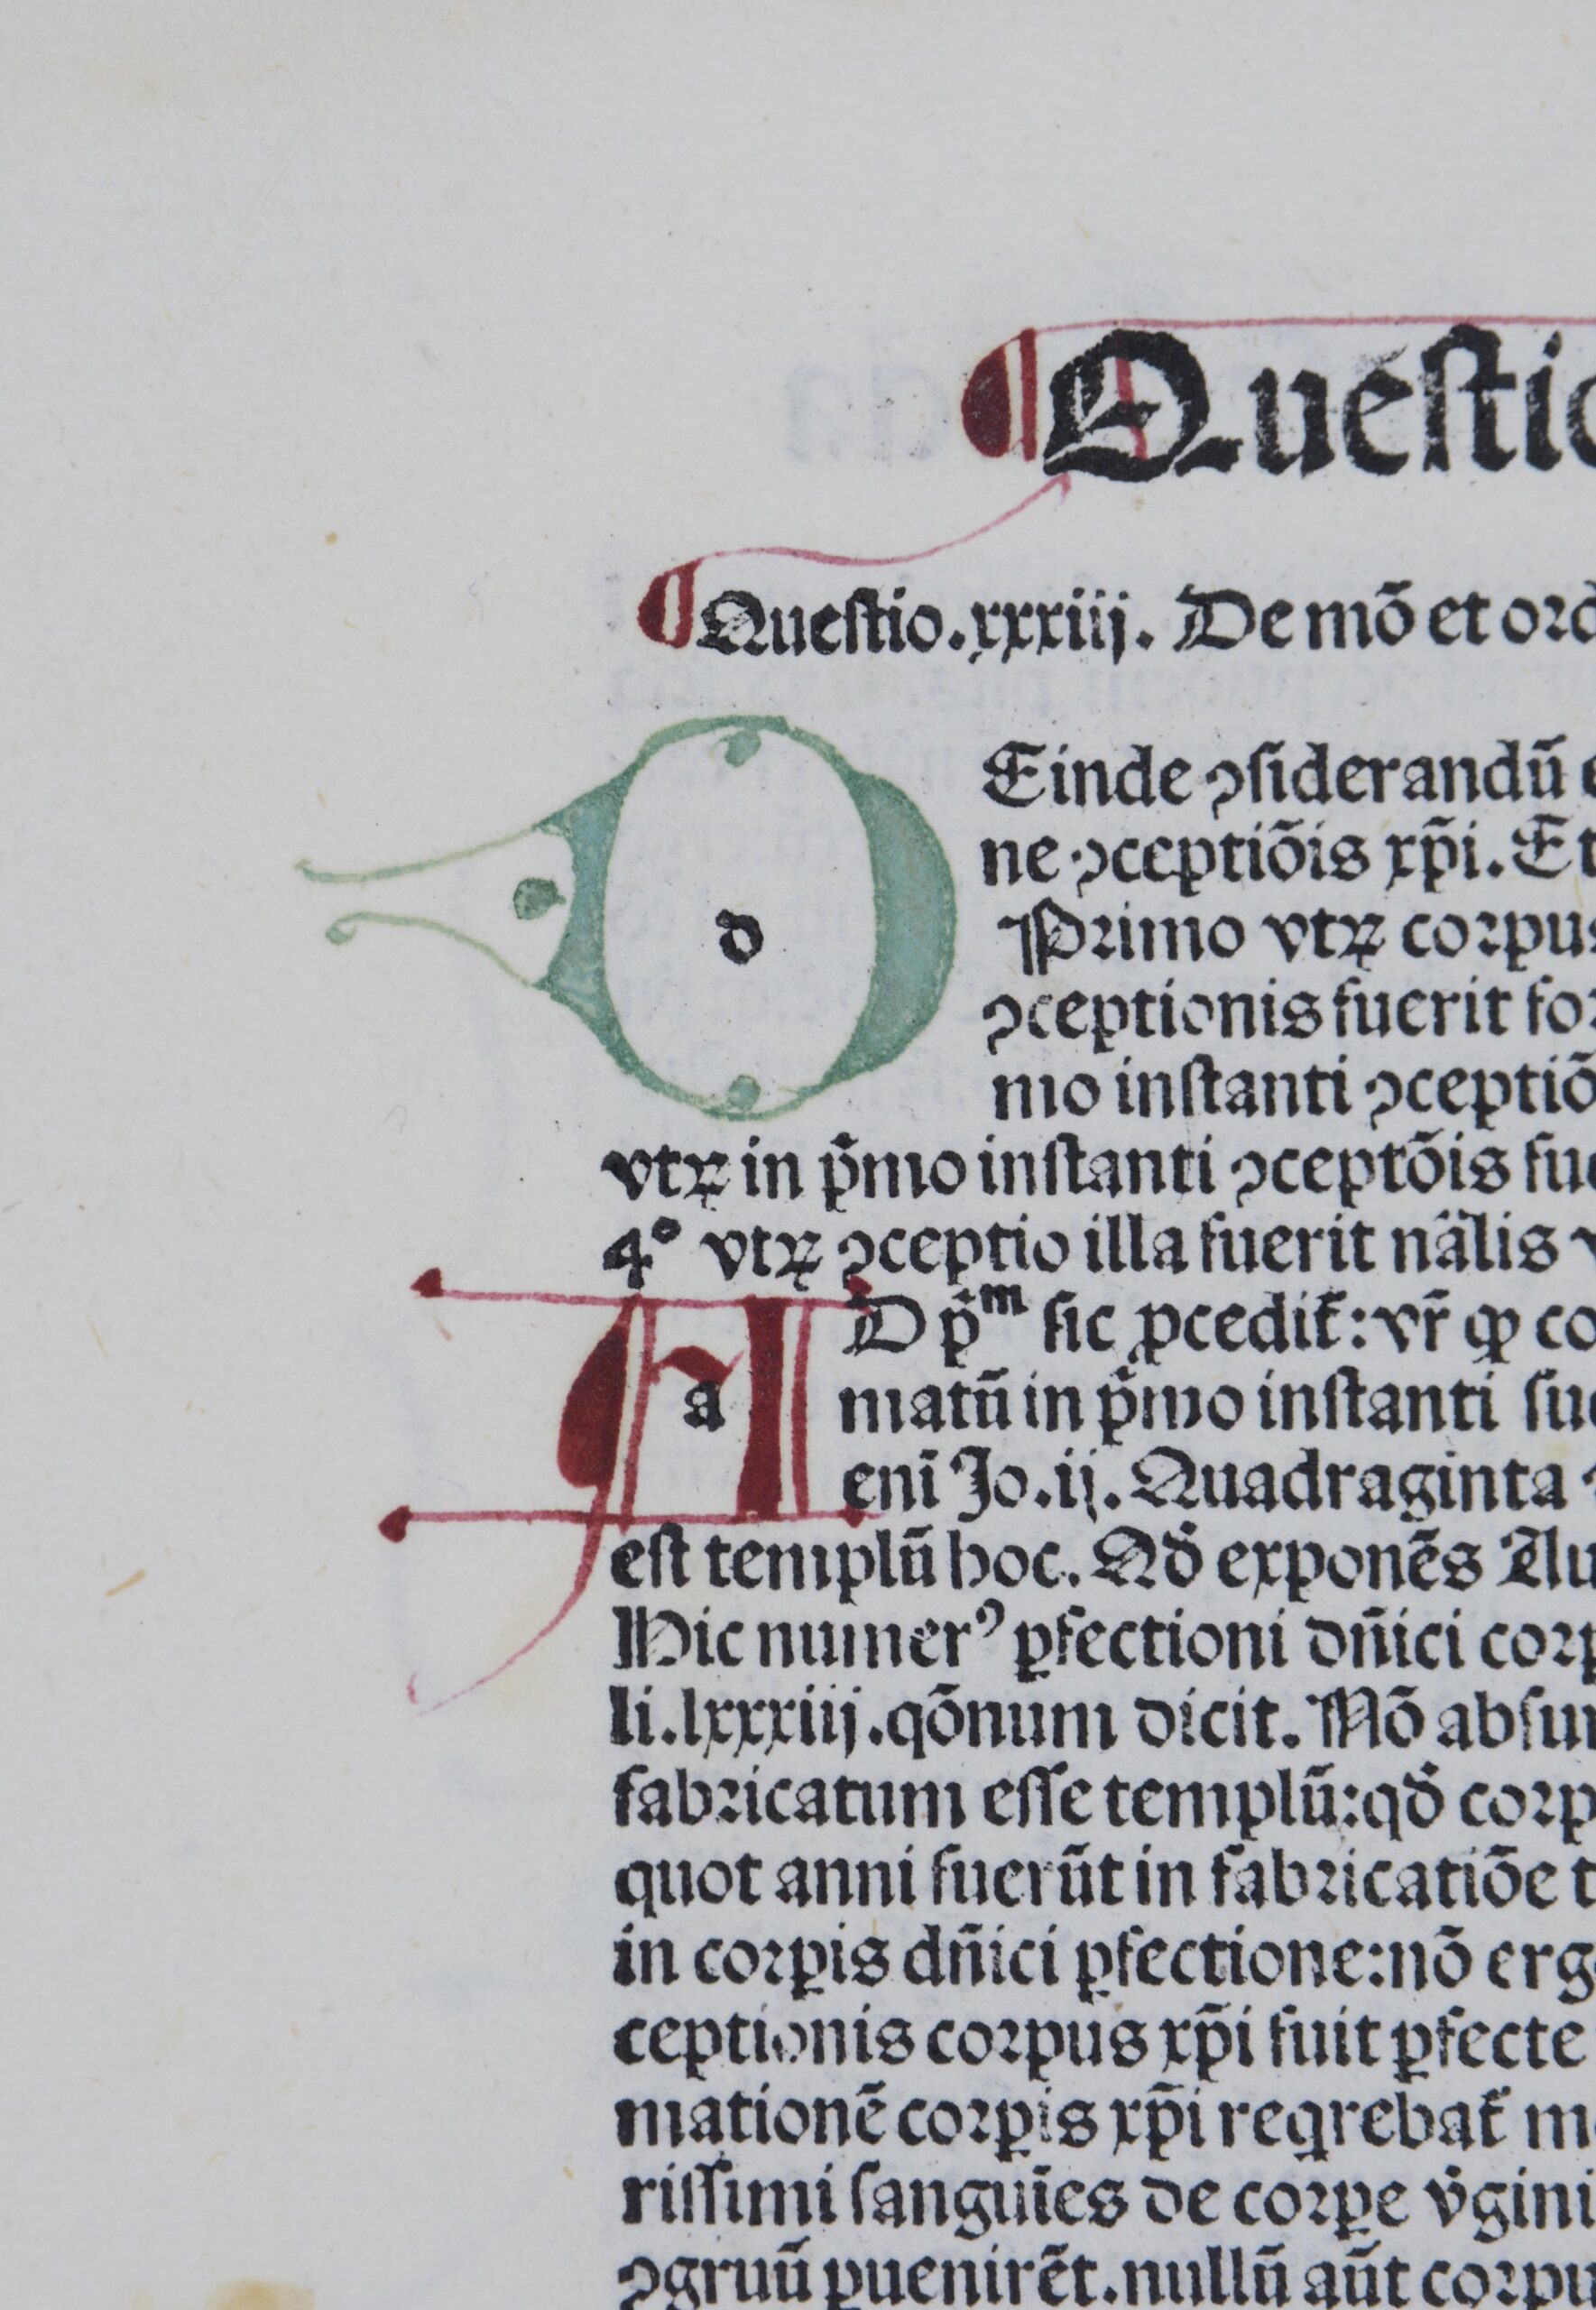 Questio
Questio.xxxiij. De mõ et ord
d
Einde ꝯsiderandũ e
ne ꝯceptiõis xp̃i. Et
Primo vtꝝ corpus
ꝯceptionis fuerit for
mo instanti ꝯceptiõ
vtꝝ in p̃mo instanti ꝯceptõis fue
4º vtꝝ ꝯceptio illa fuerit nãlis v
a
D p̃ᵐ sic ꝓcedit̃: vr̃ ꝙ co
matũ in p̃mo instanti sue
eni᷑ Jo.ij. Quadraginta
est templũ hoc. Qđ exponẽs Au
Hic numerꝰ ꝑfectioni dñici corp
li.lxxxiij.qõnum dicit. Nõ absur
fabricatum esse templũ: qđ corp
quot anni fuerũt in fabricatiõe t
in corꝑis dñici ꝑfectione: nõ erg
ceptionis corpus xp̃i fuit ꝑfecte
mationẽ corꝑis xp̃i reqrebat̃ m
rissimi sanguĩes de corꝑe v̾gini
ꝯgruũ ꝑuenirẽt. nullũ aũt corpu